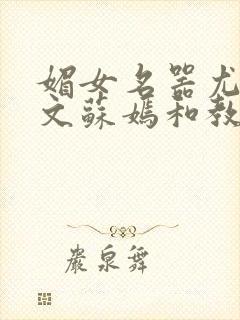 媚女名器尤
文蘇媽和教
嚴泉舞